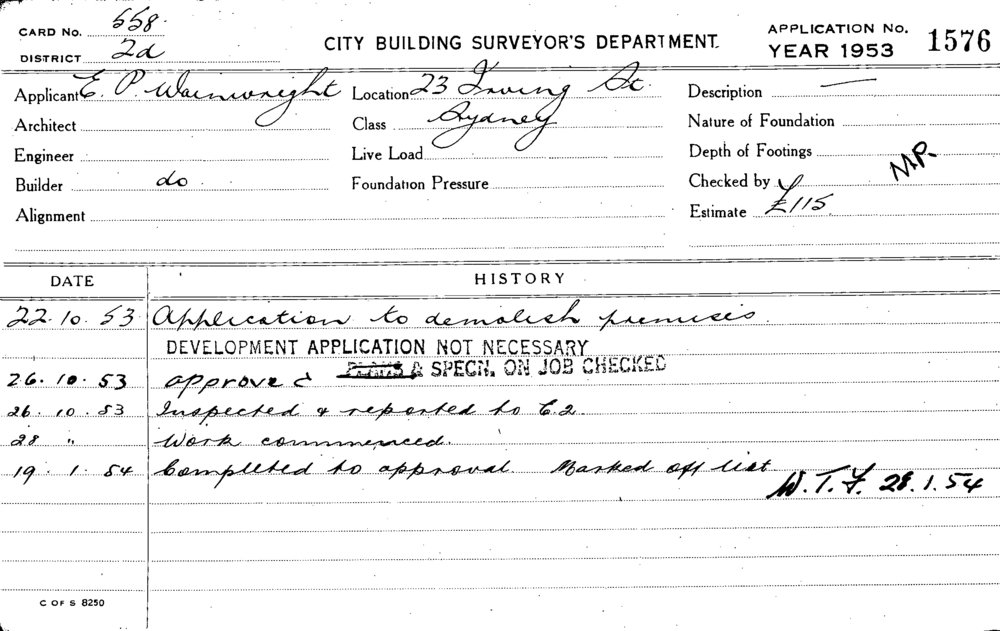 CARD No. 558.
DISTRICT 2d
CITY BUILDING SURVEYOR'S DEPARTMENT.
APPLICATION No. 1576
YEAR 1953
Applicant E. P. Wainwright Location 23 Irving St. Description —
Architect Class Sydney Nature of Foundation
Engineer Live Load Depth of Footings
Builder do Foundation Pressure Checked by MR
Alignment Estimate £115
DATE HISTORY
22.10.53 Application to demolish premises.
DEVELOPMENT APPLICATION NOT NECESSARY
PLANS & SPECN. ON JOB CHECKED
26.10.53 approved
26.10.53 Inspected & reported to C.2.
28 " Work commenced.
19.1.54 Completed to approval. Marked off list
W.T.F. 28.1.54
C OF S 8250